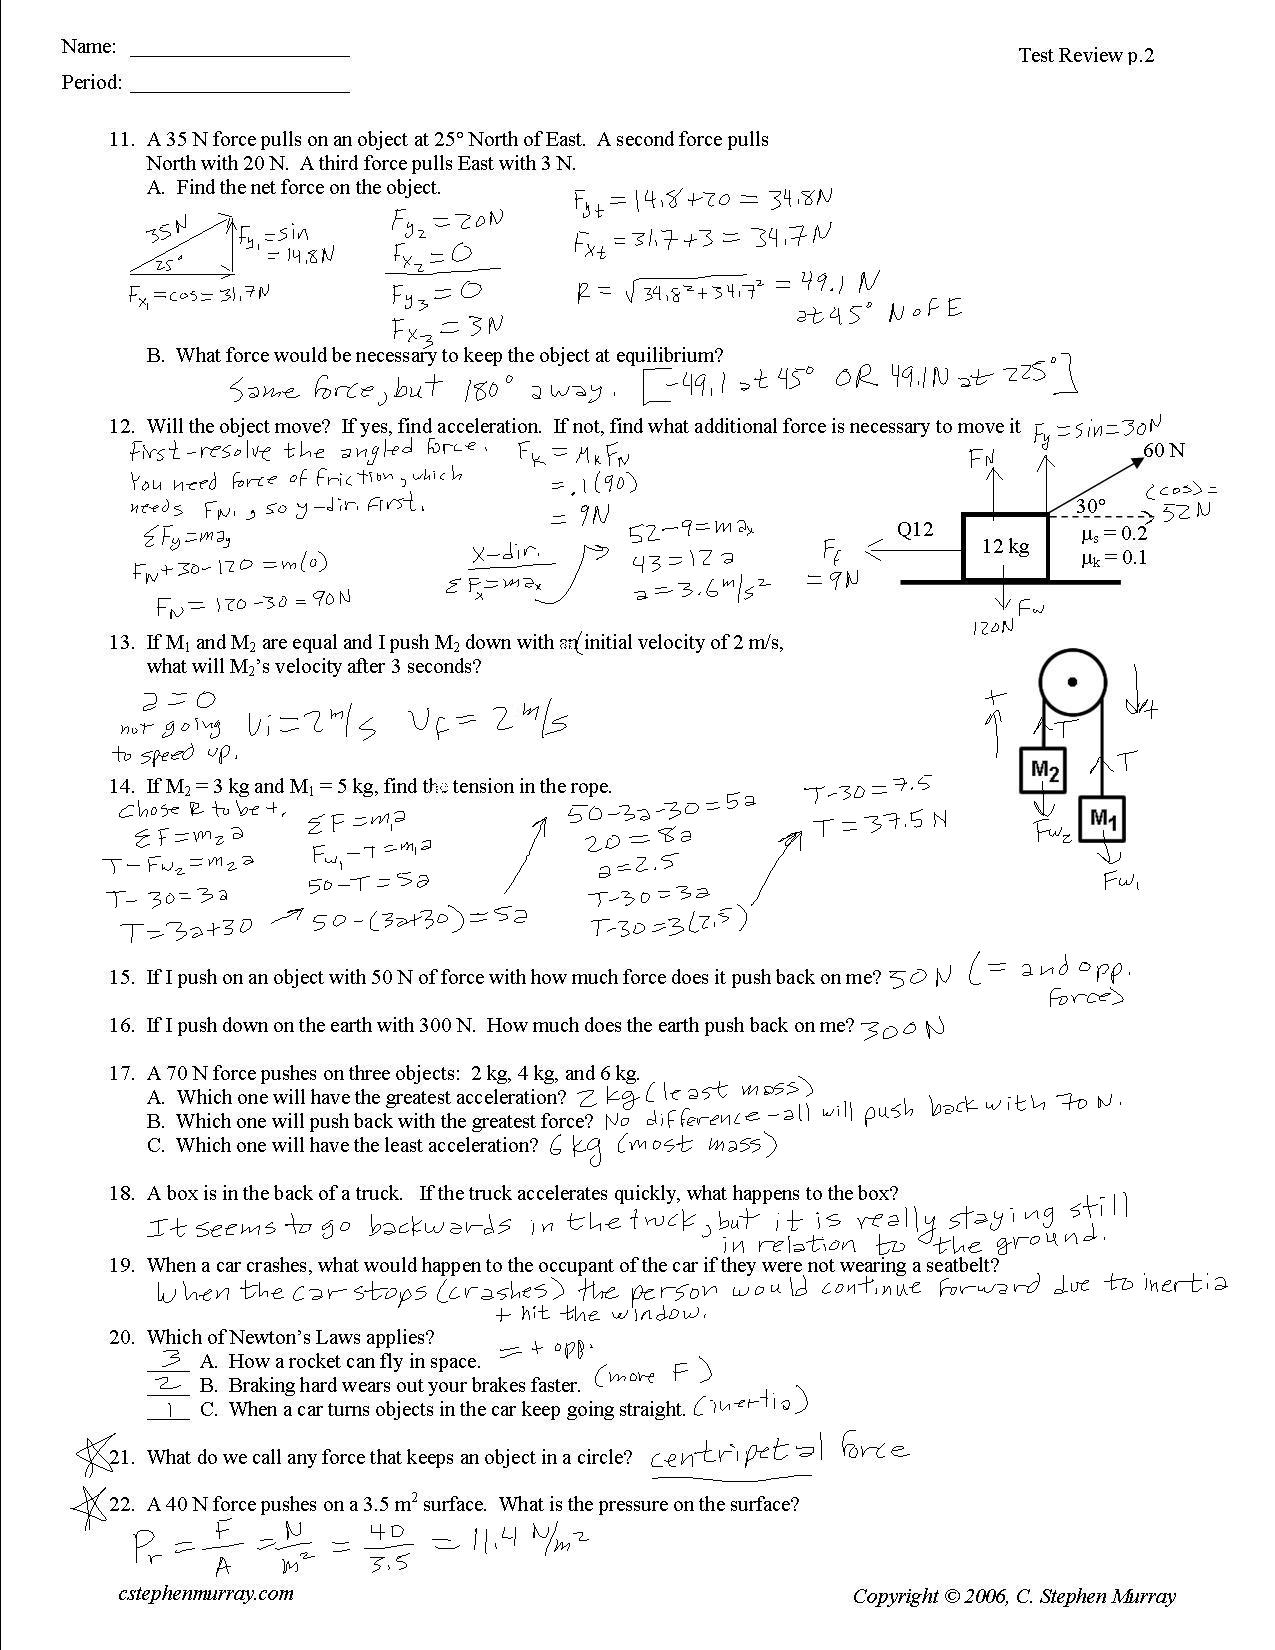 Name: ____________________
Test Review p.2
Period: ____________________
11. A 35 N force pulls on an object at 25° North of East. A second force pulls
North with 20 N. A third force pulls East with 3 N.
A. Find the net force on the object.
35N
25°
Fy₁ = sin
= 14.8N
Fx₁ = cos = 31.7N
Fy₂ = 20N
Fx₂ = 0
Fy₃ = 0
Fx₃ = 3N
Fyt = 14.8 + 20 = 34.8N
Fxt = 31.7 + 3 = 34.7N
R = √34.8² + 34.7² = 49.1 N
at 45° N of E
B. What force would be necessary to keep the object at equilibrium?
Same force, but 180° away. [-49.1 at 45° OR 49.1N at 225°]
12. Will the object move? If yes, find acceleration. If not, find what additional force is necessary to move it
First - resolve the angled force.
You need force of friction, which
needs FN, so y-dir. first.
ΣFy = may
FN + 30 - 120 = m(0)
FN = 120 - 30 = 90N
Fk = μkFN
= .1(90)
= 9N
x-dir.
ΣFx = max
52 - 9 = max
43 = 12a
a = 3.6 m/s²
Fy = sin = 30N
FN
60 N
(cos) =
52N
30°
Q12
12 kg
μs = 0.2
μk = 0.1
Ff
= 9N
Fw
120N
13. If M₁ and M₂ are equal and I push M₂ down with an initial velocity of 2 m/s,
what will M₂'s velocity after 3 seconds?
a = 0
not going
to speed up.
Vi = 2 m/s Vf = 2 m/s
+
+
T
T
M₂
M₁
Fw₂
Fw₁
14. If M₂ = 3 kg and M₁ = 5 kg, find the tension in the rope.
Chose R to be +.
ΣF = m₂a
T - Fw₂ = m₂a
T - 30 = 3a
T = 3a + 30
ΣF = m₁a
Fw₁ - T = m₁a
50 - T = 5a
50 - (3a+30) = 5a
50 - 3a - 30 = 5a
20 = 8a
a = 2.5
T - 30 = 3a
T - 30 = 3(2.5)
T - 30 = 7.5
T = 37.5 N
15. If I push on an object with 50 N of force with how much force does it push back on me? 50N (= and opp.
forces)
16. If I push down on the earth with 300 N. How much does the earth push back on me? 300N
17. A 70 N force pushes on three objects: 2 kg, 4 kg, and 6 kg.
A. Which one will have the greatest acceleration? 2 kg (least mass)
B. Which one will push back with the greatest force? No difference - all will push back with 70 N.
C. Which one will have the least acceleration? 6 kg (most mass)
18. A box is in the back of a truck. If the truck accelerates quickly, what happens to the box?
It seems to go backwards in the truck, but it is really staying still
in relation to the ground.
19. When a car crashes, what would happen to the occupant of the car if they were not wearing a seatbelt?
When the car stops (crashes) the person would continue forward due to inertia
+ hit the window.
20. Which of Newton's Laws applies?
3 A. How a rocket can fly in space. = + opp.
2 B. Braking hard wears out your brakes faster. (more F)
1 C. When a car turns objects in the car keep going straight. (inertia)
21. What do we call any force that keeps an object in a circle? centripetal force
22. A 40 N force pushes on a 3.5 m² surface. What is the pressure on the surface?
Pr = F/A = N/m² = 40/3.5 = 11.4 N/m²
cstephenmurray.com
Copyright © 2006, C. Stephen Murray